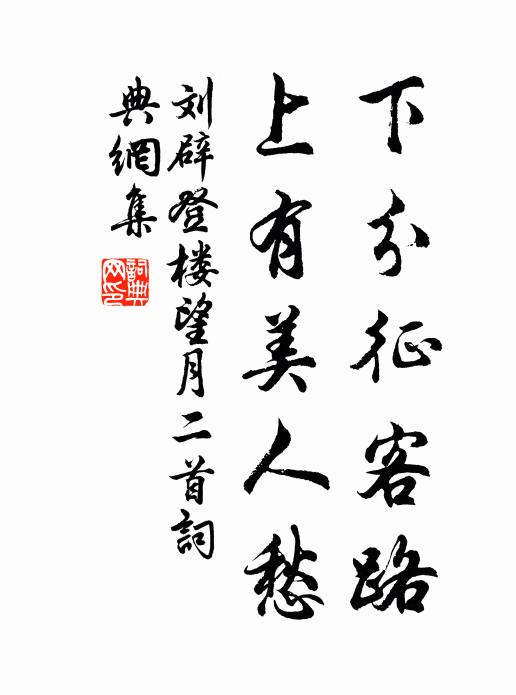 下分征客路
上有美人愁
刘辟登楼望月二首詞
典網集
詞典网印